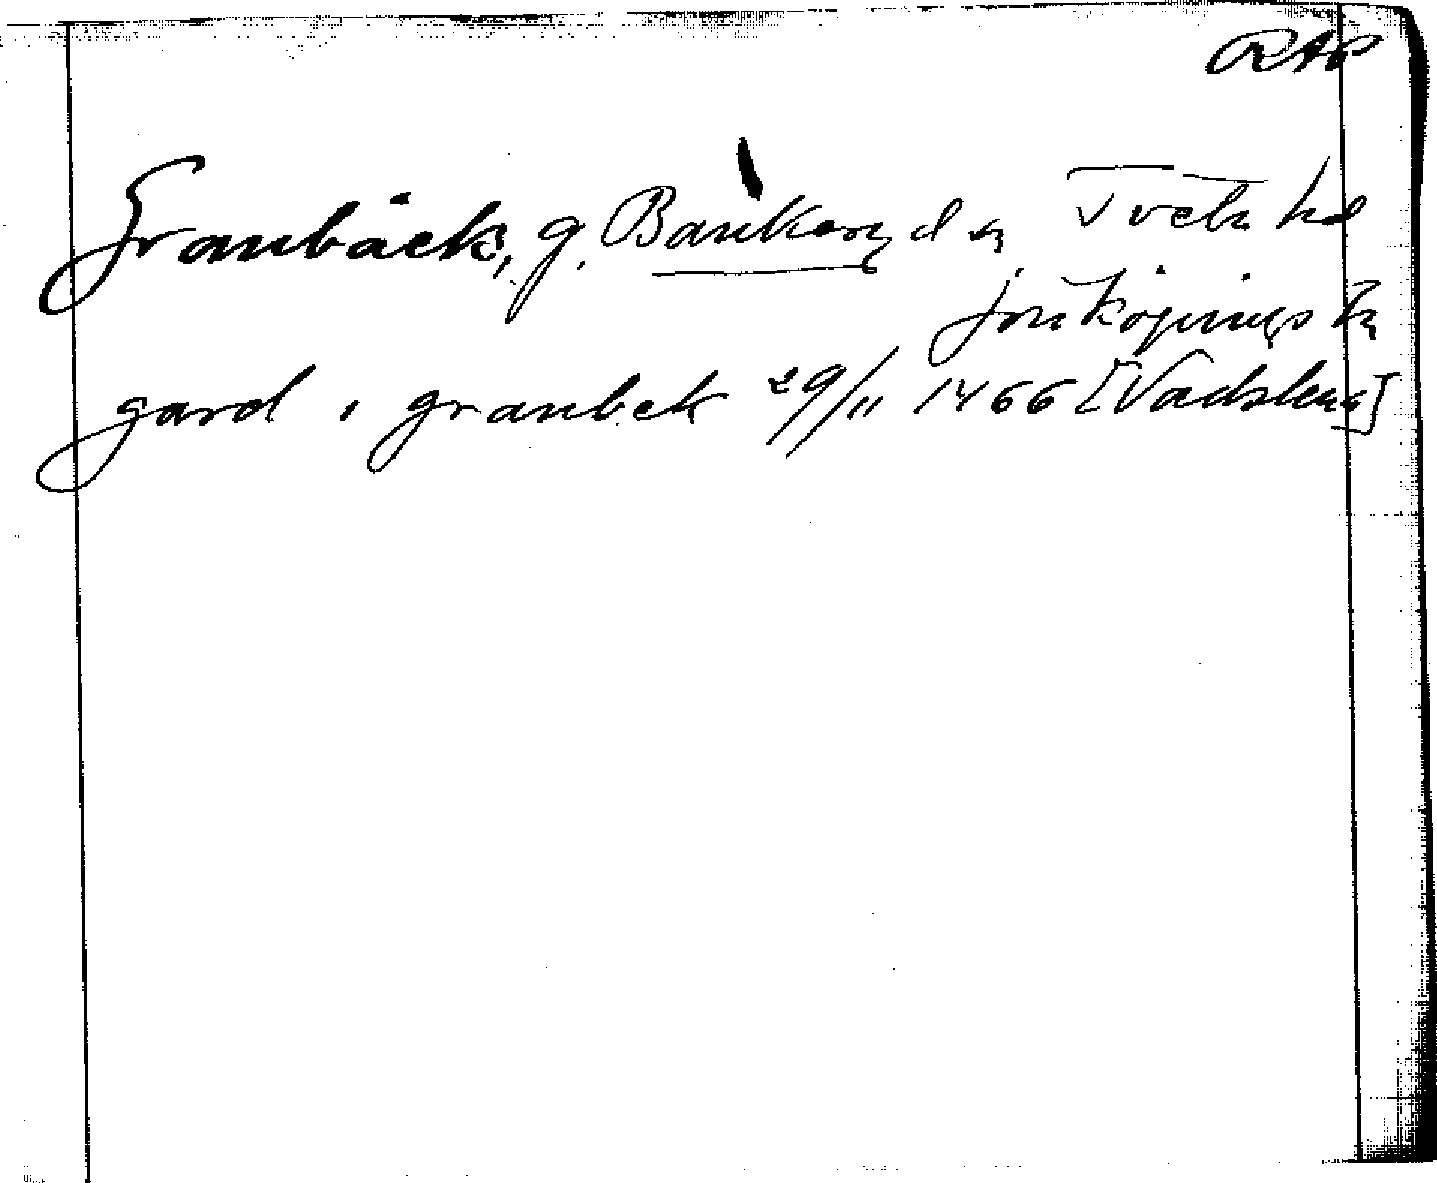 RAP
Granbäck, g. Bankeryd sn Tveta hd
Jönköpings län
gard i granbek 29/11 1466 [Vadstena]